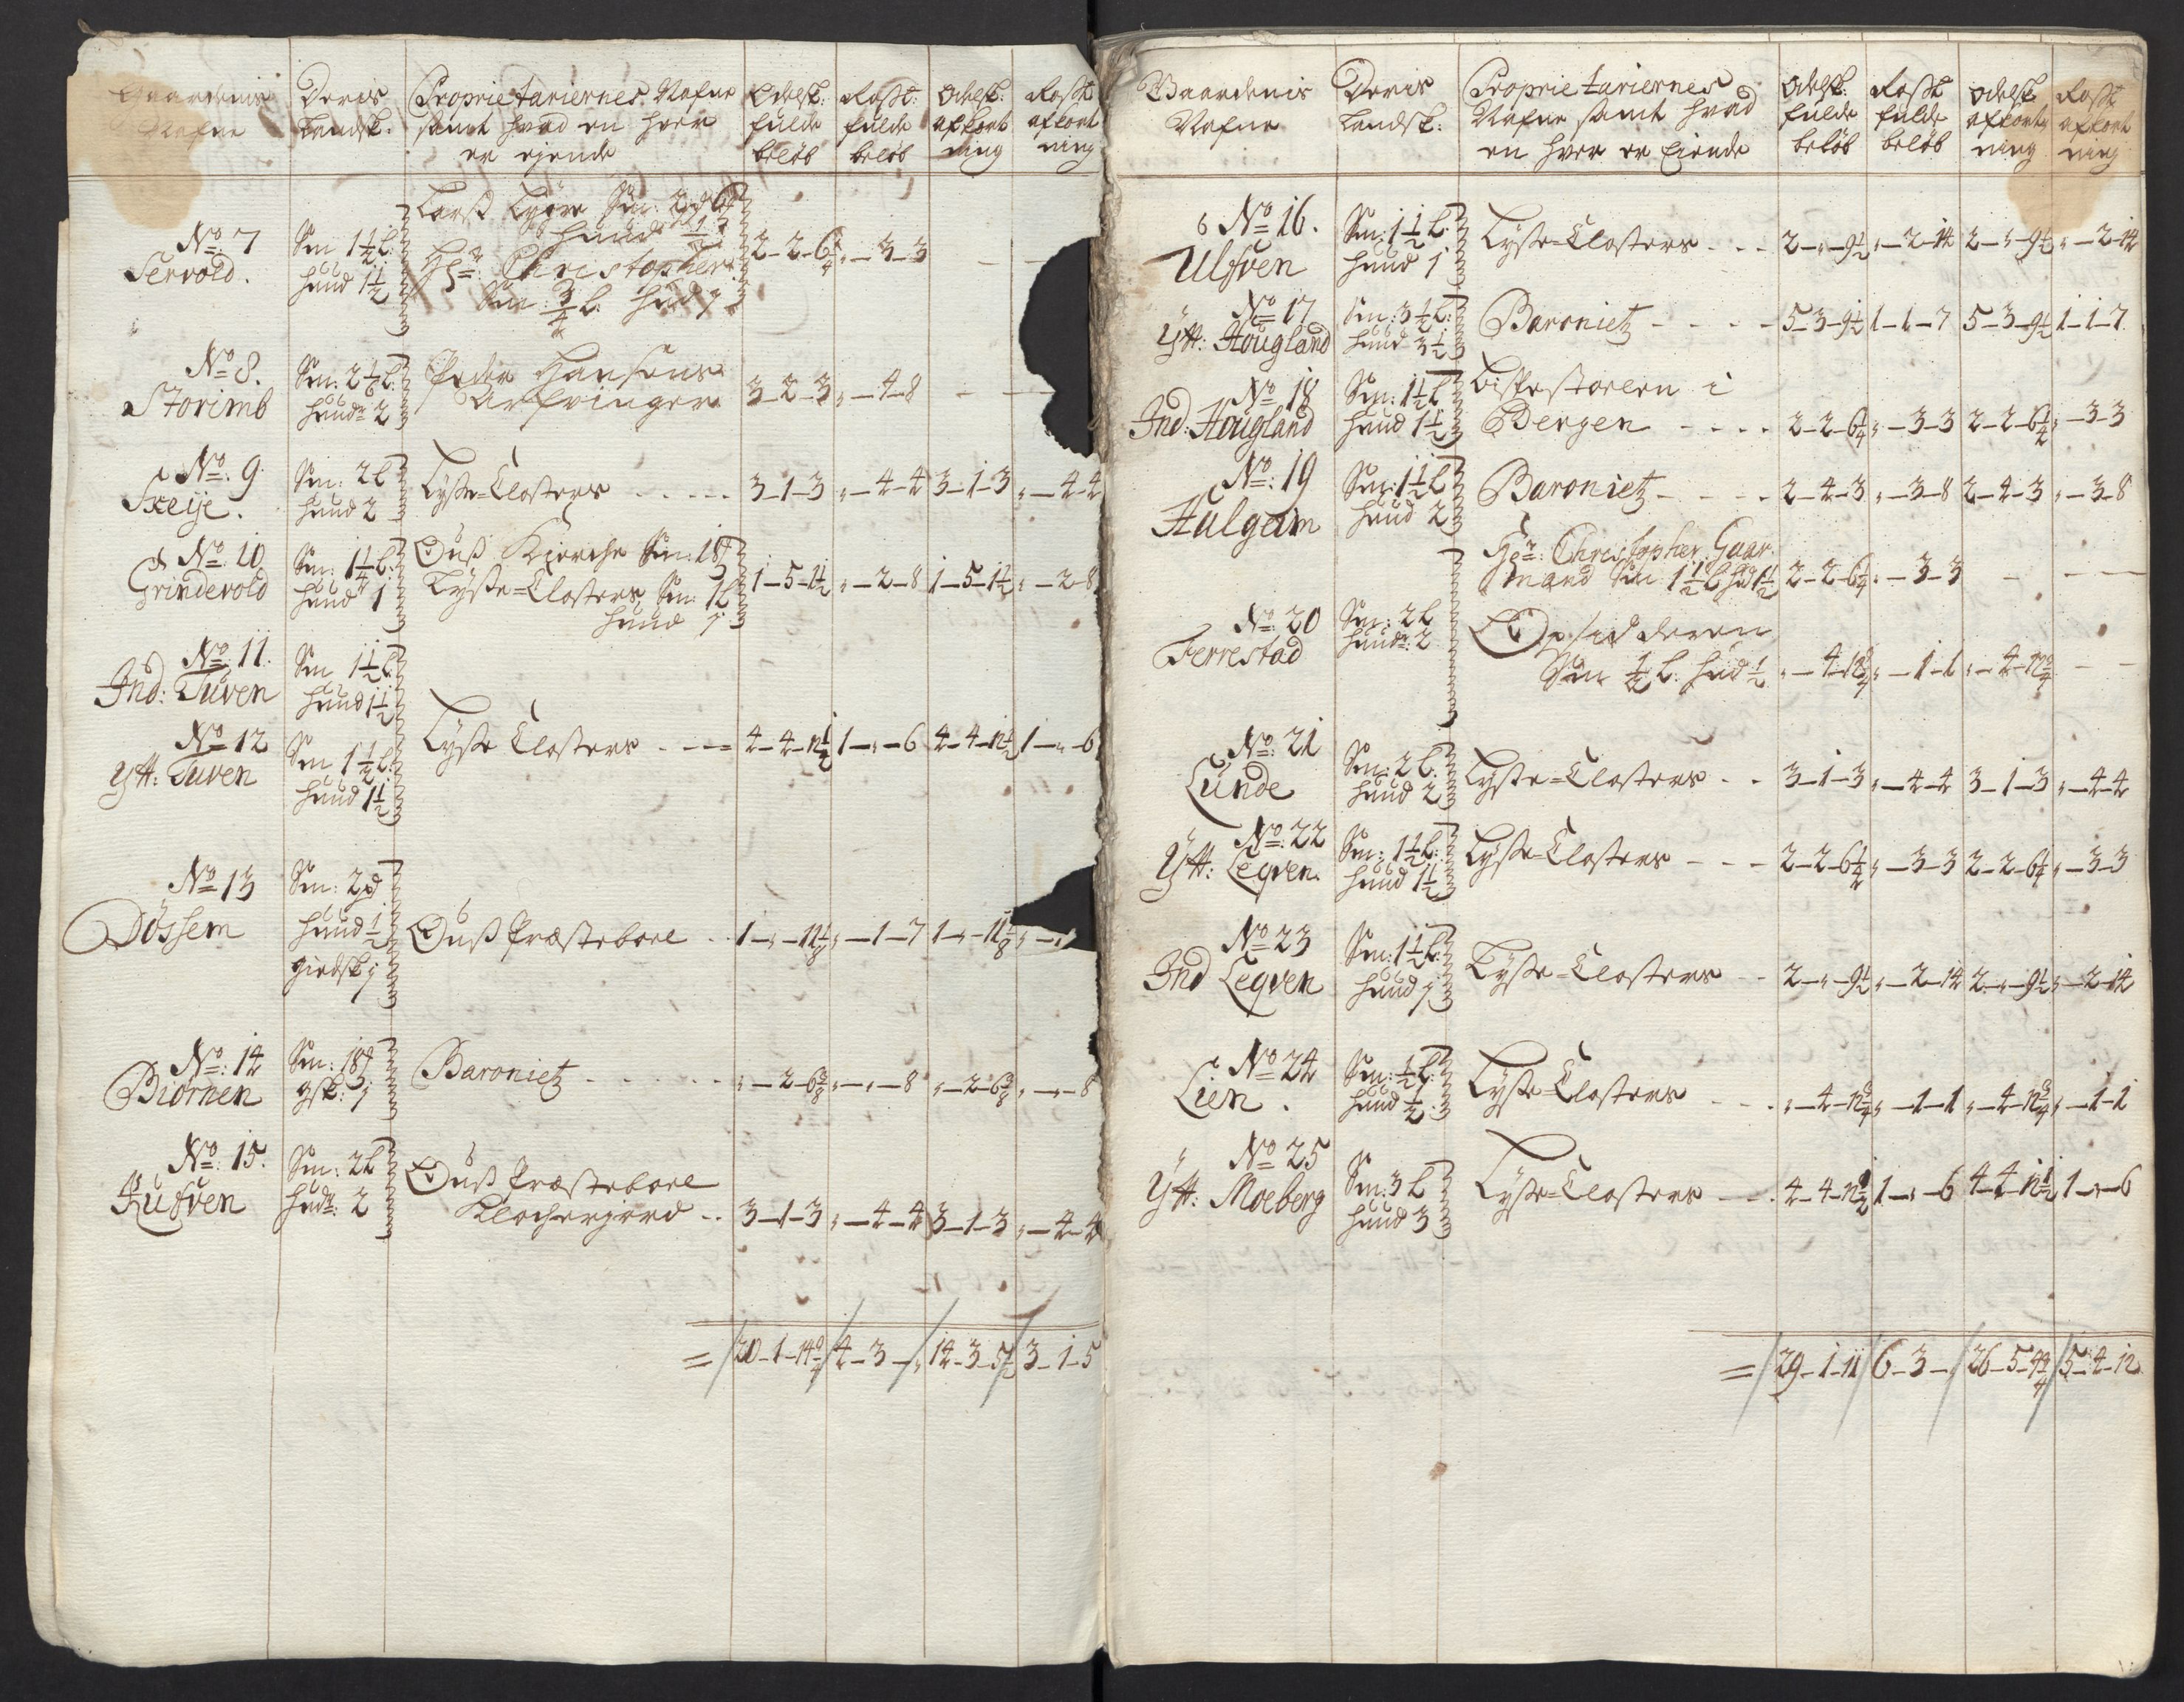 Gaardenis Nafne | Deris Landsk: | Proprietariernes Nafne samt hvad en hver er ejende | Odelsk: fulde beløb | Rostt: fulde beløb | Odelsk: afkortning | Rostt afkortning
No: 7 Servold. | Sm 1½ l: hund 1½ | Larss Sm: hund ½ Hr: Christopher Sm: ¾ l. hud | 2-2-6¼ | "-3-3 | - | -
No 8. Storimb | Sm: 2½ l: hund 2 | Peder Hansens Arfvinger | 3-2-3 | "-4-8 | - | -
No: 9. Skeije. | Sm: 2 l hund 2 | Lysse-Closters | 3-1-3 | "-4-4 | 3-1-3 | "-4-4
No: 10 Grindevold | Sm: 1¼ l: hund 1 | Ouss Kierche Sm: 18 Lysse-Closters Sm: 1 l hund 1 | 1-5-1½ | "-2-8 | 1-5-1½ | "-2-8
No 11. Ind: Tuven | Sm 1½ l: hund 1½
No 12 Ytt: Tuven | Sm 1½ l: hund 1½ | Lysse Closters | 4-4-12½ | 1-"-6 | 4-4-12½ | 1-"-6
No 13 Døssem | Sm: 2 hund ½ giedsk 1 | Ouss Præstebole | 1-"-11⅛ | "-1-7 | 1-"-11⅛ | "-
No: 14 Biørnen | Sm: 18 gsk: 1 | Baronietz | "-2-6⅜ | "-"-8 | "-2-6⅜ | "-"-8
No: 15. Kufven | Sm: 2 l hud: 2 | Ouss Præstebole Klocherjord | 3-1-3 | "-4-4 | 3-1-3 | "-4-4
= | 20-1-14¾ | 4-3-" | 14-3-5½ | 3-1-5
Gaardenis Nafne | Deris Landsk: | Proprietariernes Nafne samt hvad en hver er Eiende | Odelsk: fulde beløb | Rostt fulde beløb | Odelsk afkortning | Rostt afkortning
No 16. Ulfven | Sm: 1½ l: hund 1 | Lysse-Closters | 2-"-9½ | "-2-14 | 2-"-9½ | "-2-14
No 17 Ytt: Hougland | Sm: 3½ l: hund 3½ | Baronietz | 5-3-9½ | 1-1-7 | 5-3-9½ | 1-1-7
No 18 Ind: Hougland | Sm: 1½ l hund 1½ | Bispestolen i Bergen | 2-2-6¼ | "-3-3 | 2-2-6¼ | "-3-3
No: 19 Halgeim | Sm: 1½ l hund 2 | Baronietz | 2-4-3 | "-3-8 | 2-4-3 | "-3-8
No: 20 Ferrestad | Sm: 2 l hund: 2 | Hr: Christopher Gaarmand Sm 1½ l hd 1½ | 2-2-6¼ | "-3-3 | - | -
Opsidderen Sm ½ l: hud ½ | "-4-12¾ | "-1-1 | "-4-12¾ | -
No: 21 Lunde | Sm: 2 l: hund 2 | Lysse-Closters | 3-1-3 | "-4-4 | 3-1-3 | "-4-4
No: 22 Ytt: Leqven. | Sm: 1½ l: hund 1½ | Lysse-Closters | 2-2-6¼ | "-3-3 | 2-2-6¼ | "-3-3
No 23 Ind Leqven | Sm: 1½ l: hund 1 | Lysse-Closters | 2-"-9½ | "-2-14 | 2-"-9½ | "-2-14
No: 24 Lien. | Sm: ½ l: hund ½. | Lysse-Closters | "-4-12¾ | "-1-1 | "-4-12¾ | "-1-1
No 25 Ytt: Moeberg | Sm: 3 l hund 3 | Lysse-Closters | 4-4-12½ | 1-"-6 | 4-4-12½ | 1-"-6
= | 29-1-11 | 6-3-" | 26-5-4¾ | 5-4-12